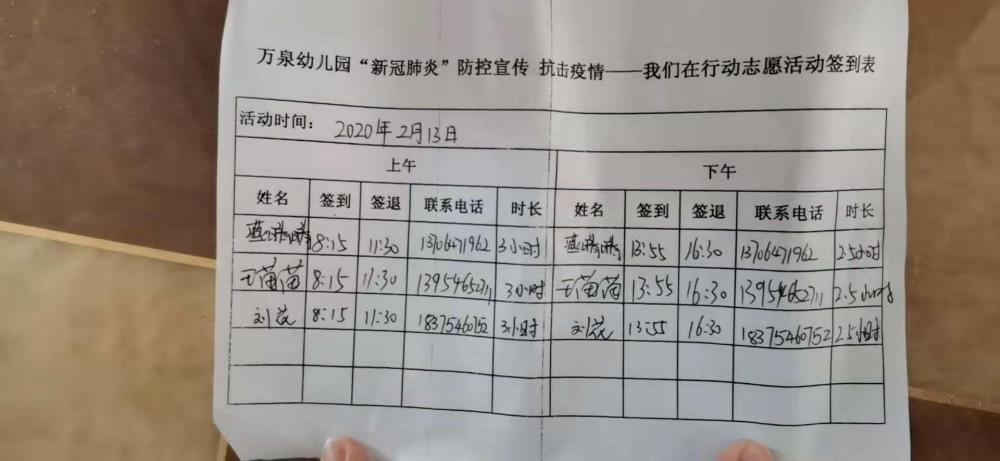 万泉幼儿园“新冠肺炎”防控宣传 抗击疫情——我们在行动志愿活动签到表
活动时间： 2020年2月13日
上午 下午
姓名 签到 签退 联系电话 时长 姓名 签到 签退 联系电话 时长
8:15 11:30 13706471962 3小时 13:55 16:30 13706471962 2.5小时
王苗苗 8:15 11:30 13954652711 3小时 王苗苗 13:55 16:30 13954652711 2.5小时
刘 8:15 11:30 18375460752 3小时 刘 13:55 16:30 18375460752 2.5小时